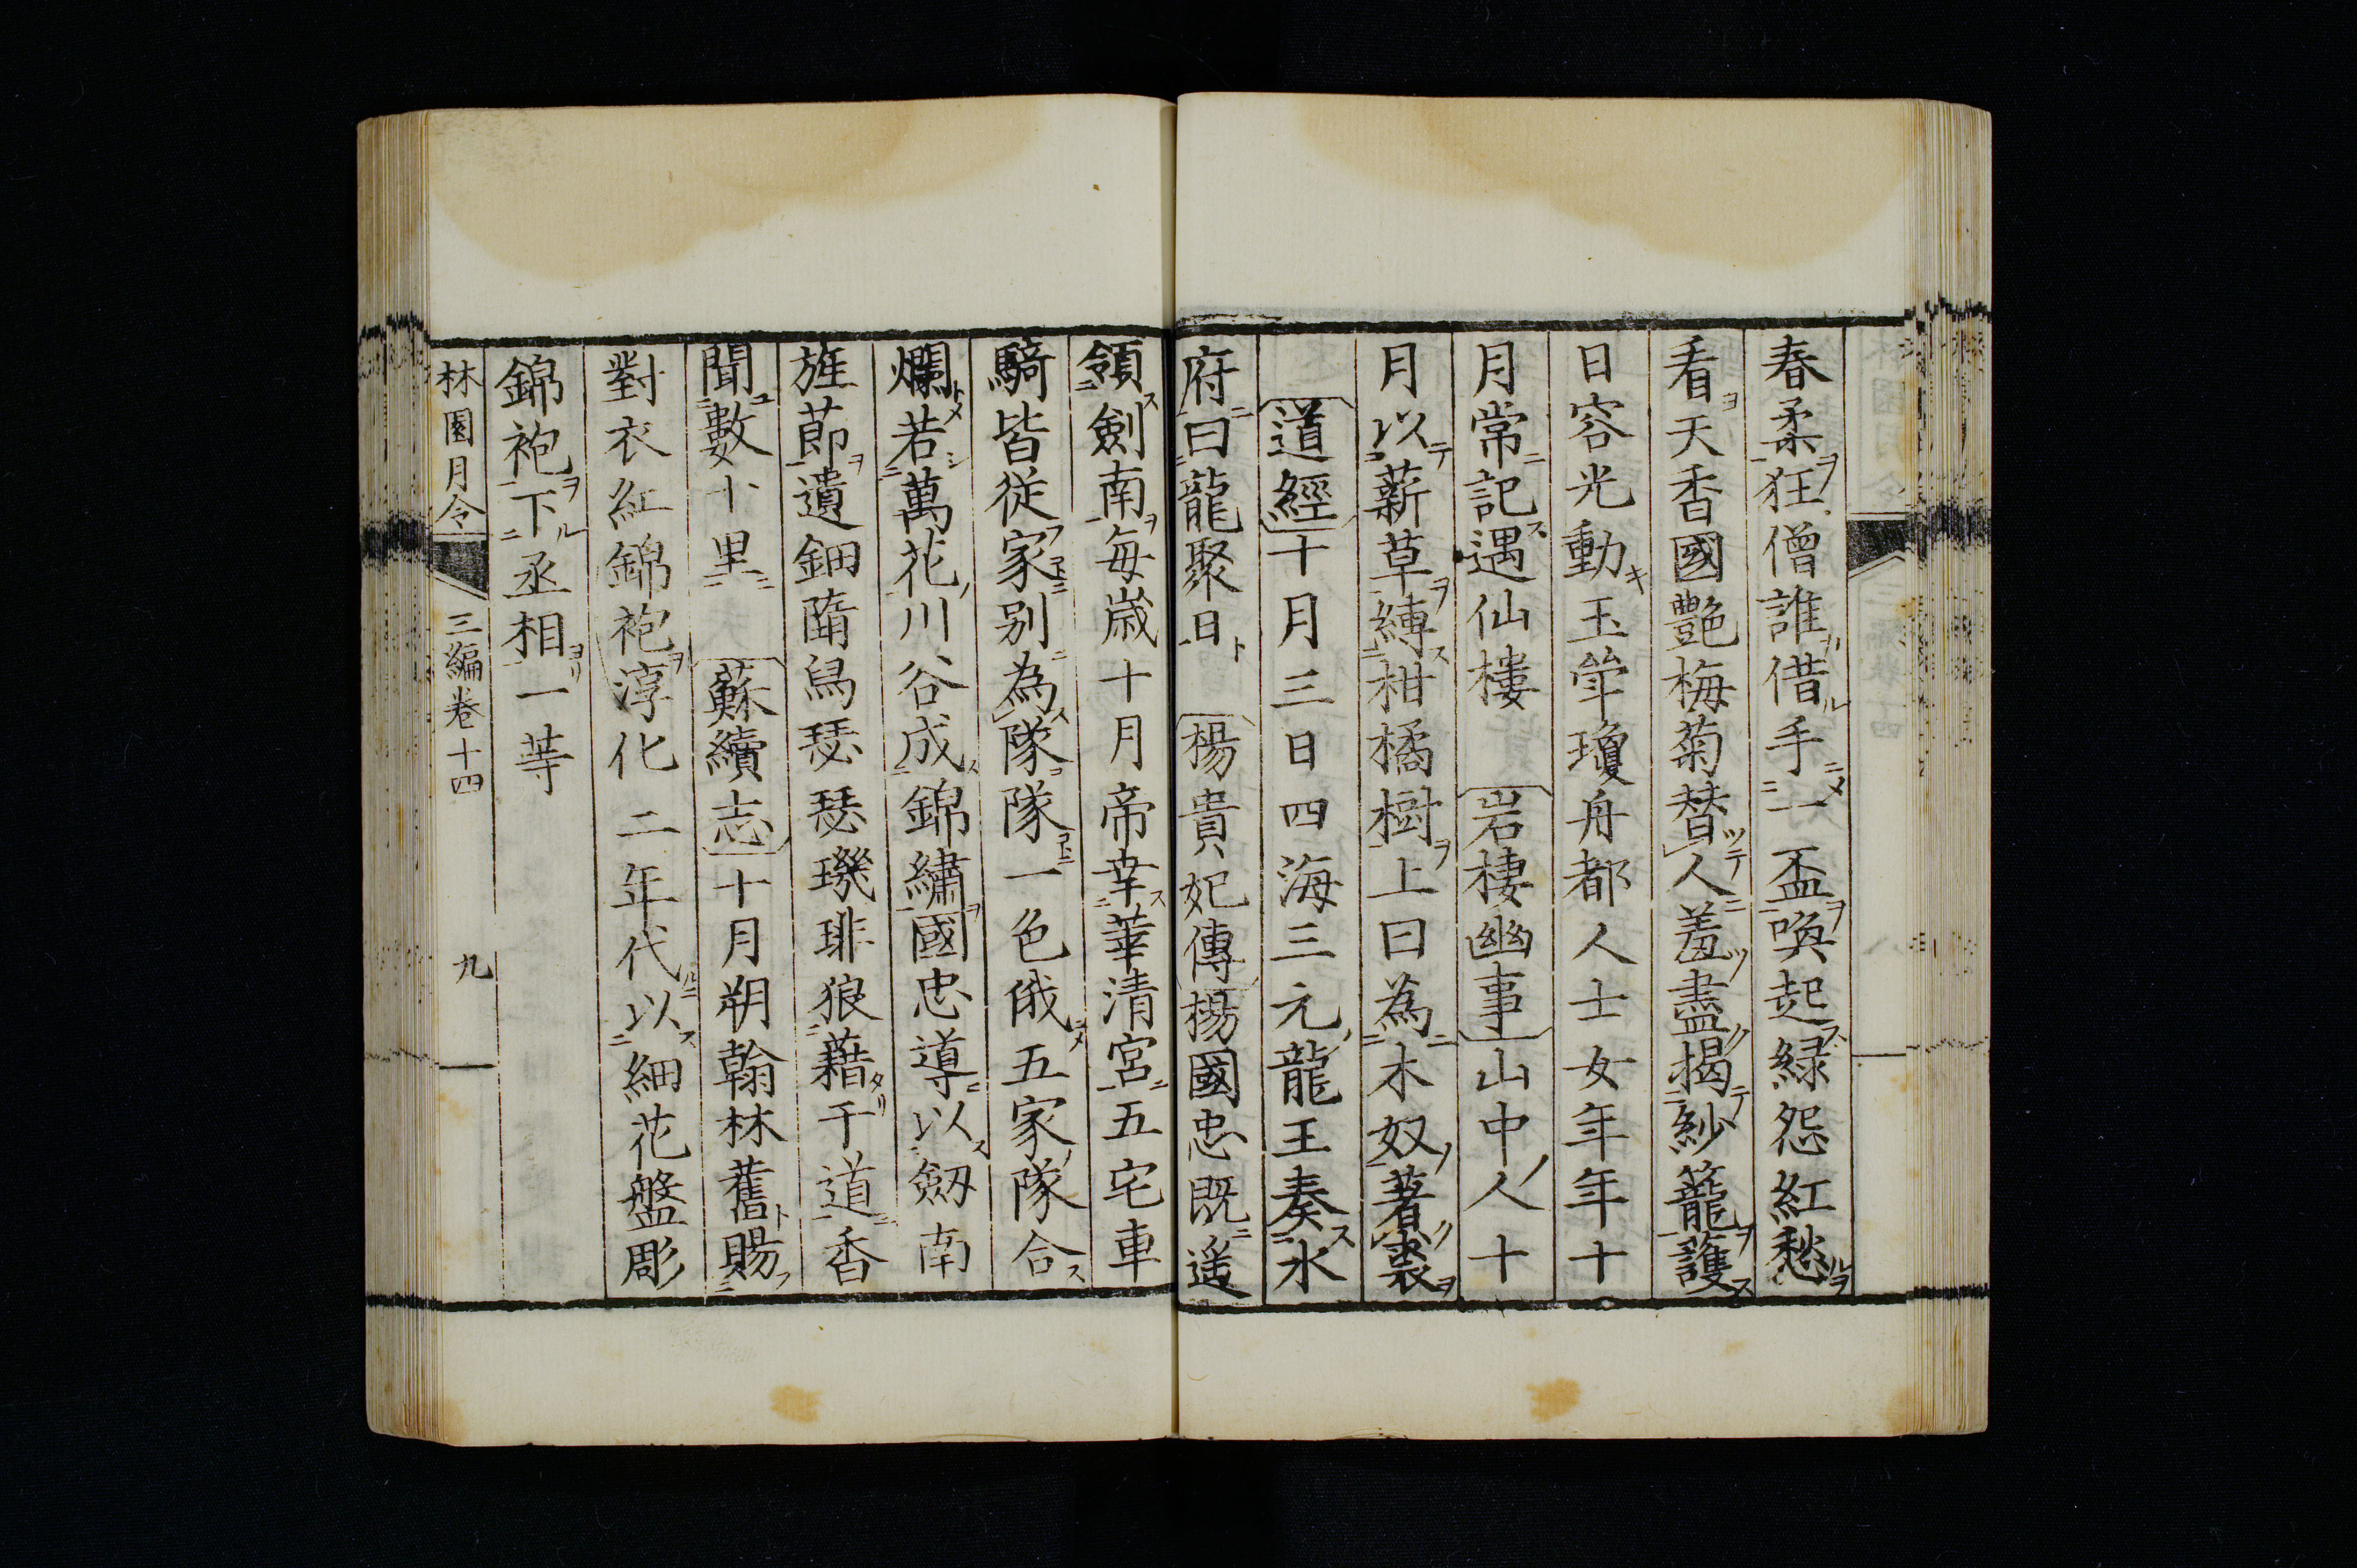 春柔狂僧誰借手一盃喚起緑怨紅愁
看天香國艷梅菊替人羞盡揭紗籠護
日容光動玉斚瓊舟都人士女年年十
月常記遇仙樓 岩棲幽事山中人十
月以薪草縛柑橘樹上曰為木奴著裘
道經十月三日四海三元龍王奏水
府曰龍聚日 楊貴妃傳楊國忠既遥
領劍南每歳十月帝幸華清宮五宅車
騎皆從家别為隊隊一色俄五家隊合
爛若萬花川谷成錦繡國忠導以劔南
旌節遺鈿墮舄瑟瑟璣琲狼藉于道香
聞數十里 蘇續志十月朔翰林舊賜
對衣紅錦袍淳化二年代以細花盤彫
錦袍下丞相一等
林園月令 三編卷十四 九